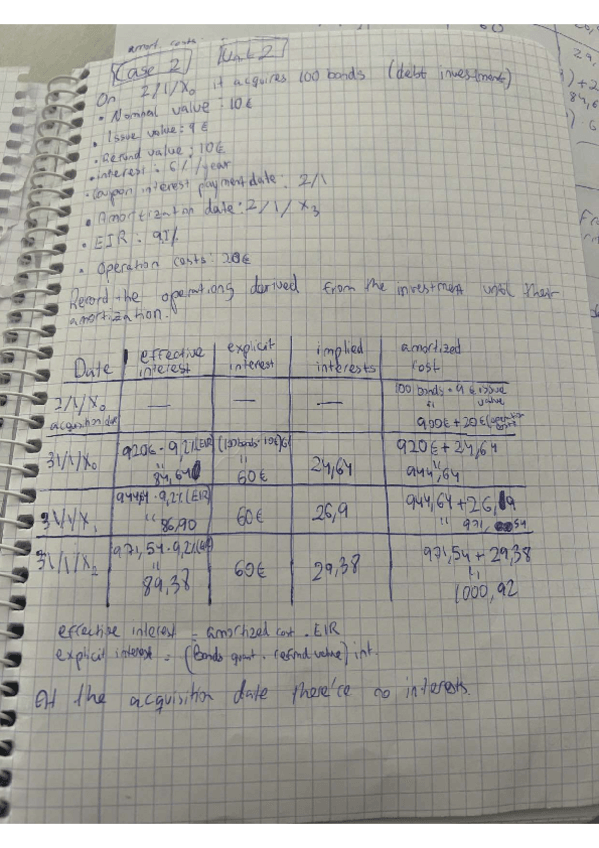 amort. costs
Case 2 Unit 2
On 2/1/X0 it acquires 100 bonds (debt investment)
• Nominal value : 10€
• Issue value : 9€
• Refund value : 10€
• Interest : 6%/year
• Coupon interest payment date : 2/1
• Amortization date : 2/1/X3
• EIR : 9,2%
• Operation costs : 20€
Record the operations derived from the investment until their
amortization.
Date effective interest explicit interest implied interests amortized cost
2/1/X0 — — — 100 bonds · 9€ issue value
acquisition
900€ + 20€
31/1/X0 920€ · 9,2% (EIR) (100 bonds · 10€)6% 24,64 920€ + 24,64
84,64 60€ 944,64
31/1/X1 944,64 · 9,2% (EIR) 60€ 26,9 944,64 + 26,9
86,90 971,54
31/1/X2 971,54 · 9,2% 60€ 29,38 971,54 + 29,38
89,38 1000,92
effective interest = amortized cost · EIR
explicit interest = (Bonds quant. · refund value) int.
At the acquisition date there're no interests.